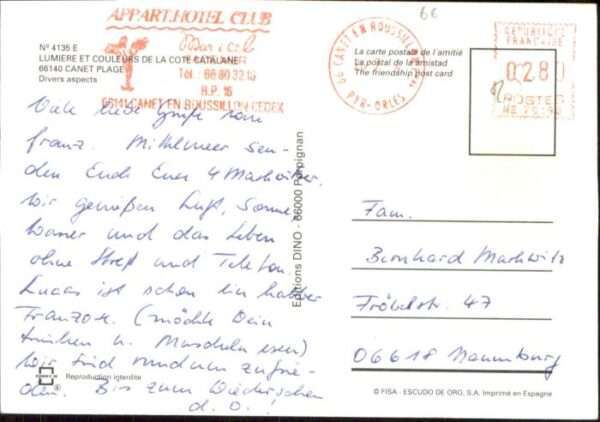 APPART.HOTEL CLUB
66141 CANET EN ROUSSILLON CEDEX
B.P. 16
66 CANET EN ROUSSILLON
PYR-ORLES
REPUBLIQUE
FRANCAISE
0280
POSTES
66
Nº 4135 E
LUMIERE ET COULEURS DE LA COTE CATALANE
66140 CANET PLAGE
Divers aspects
La carte postale de l'amitié
La postal de la amistad
The friendship post card
Viele liebe Grüße vom
franz. Mittelmeer sen-
den Euch Eure 4 Markwitze.
Wir genießen Luft, Sonne,
Wasser und das Leben
ohne Streß und Telefon.
Lucas ist schon ein halber
Franzose. (möchte Wein
trinken u. Muscheln essen)
Wir sind rundum zufrie-
den. Bis zum Wiedersehen
d. O.
Editions DINO - 66000 Perpignan
Fam.
Bernhard Markwitz
Fröbelstr. 47
06618 Naumburg
Reproduction interdite
© FISA - ESCUDO DE ORO, S.A. Imprimé en Espagne